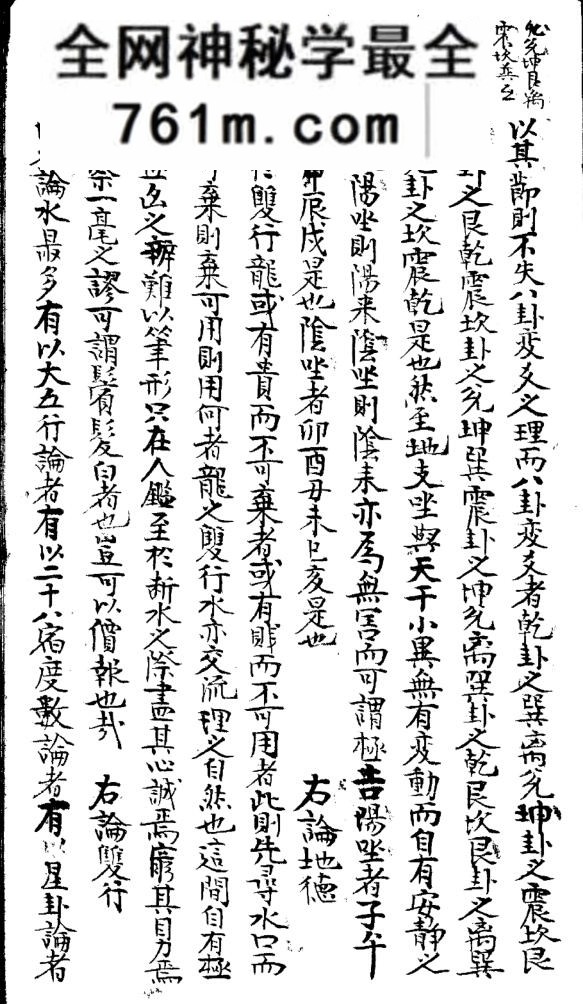 全网神秘学最全
761m.com
兑坤艮离
震坎巽之
以其節則不失八卦変爻之理而八卦変爻者乾卦之巽离兑坤卦之震坎艮
卦之艮乾震坎卦之兑坤巽震卦之坤兑离巽卦之乾艮坎艮卦之离巽
卦之坎震乾是也然至地支坐與天干小異無有変動而自有安静之
陽坐則陽来陰坐則陰来亦爲無害而可謂極吉陽坐者子午
辰戌是也陰坐者卯酉丑未巳亥是也 右論地德
雙行龍或有貴而不可棄者或有賤而不可用者此則先尋水口而
棄則棄可用則用何者龍之雙行水亦交流理之自然也這間自有極
凶之辨難以筆形只在人鑑至於斬水之際盡其心誠焉窮其目力焉
一毫之謬可謂鬂髮白者也豈可以價報也哉 右論雙行
論水最多有以大五行論者有以二十八宿度數論者有以星卦論者